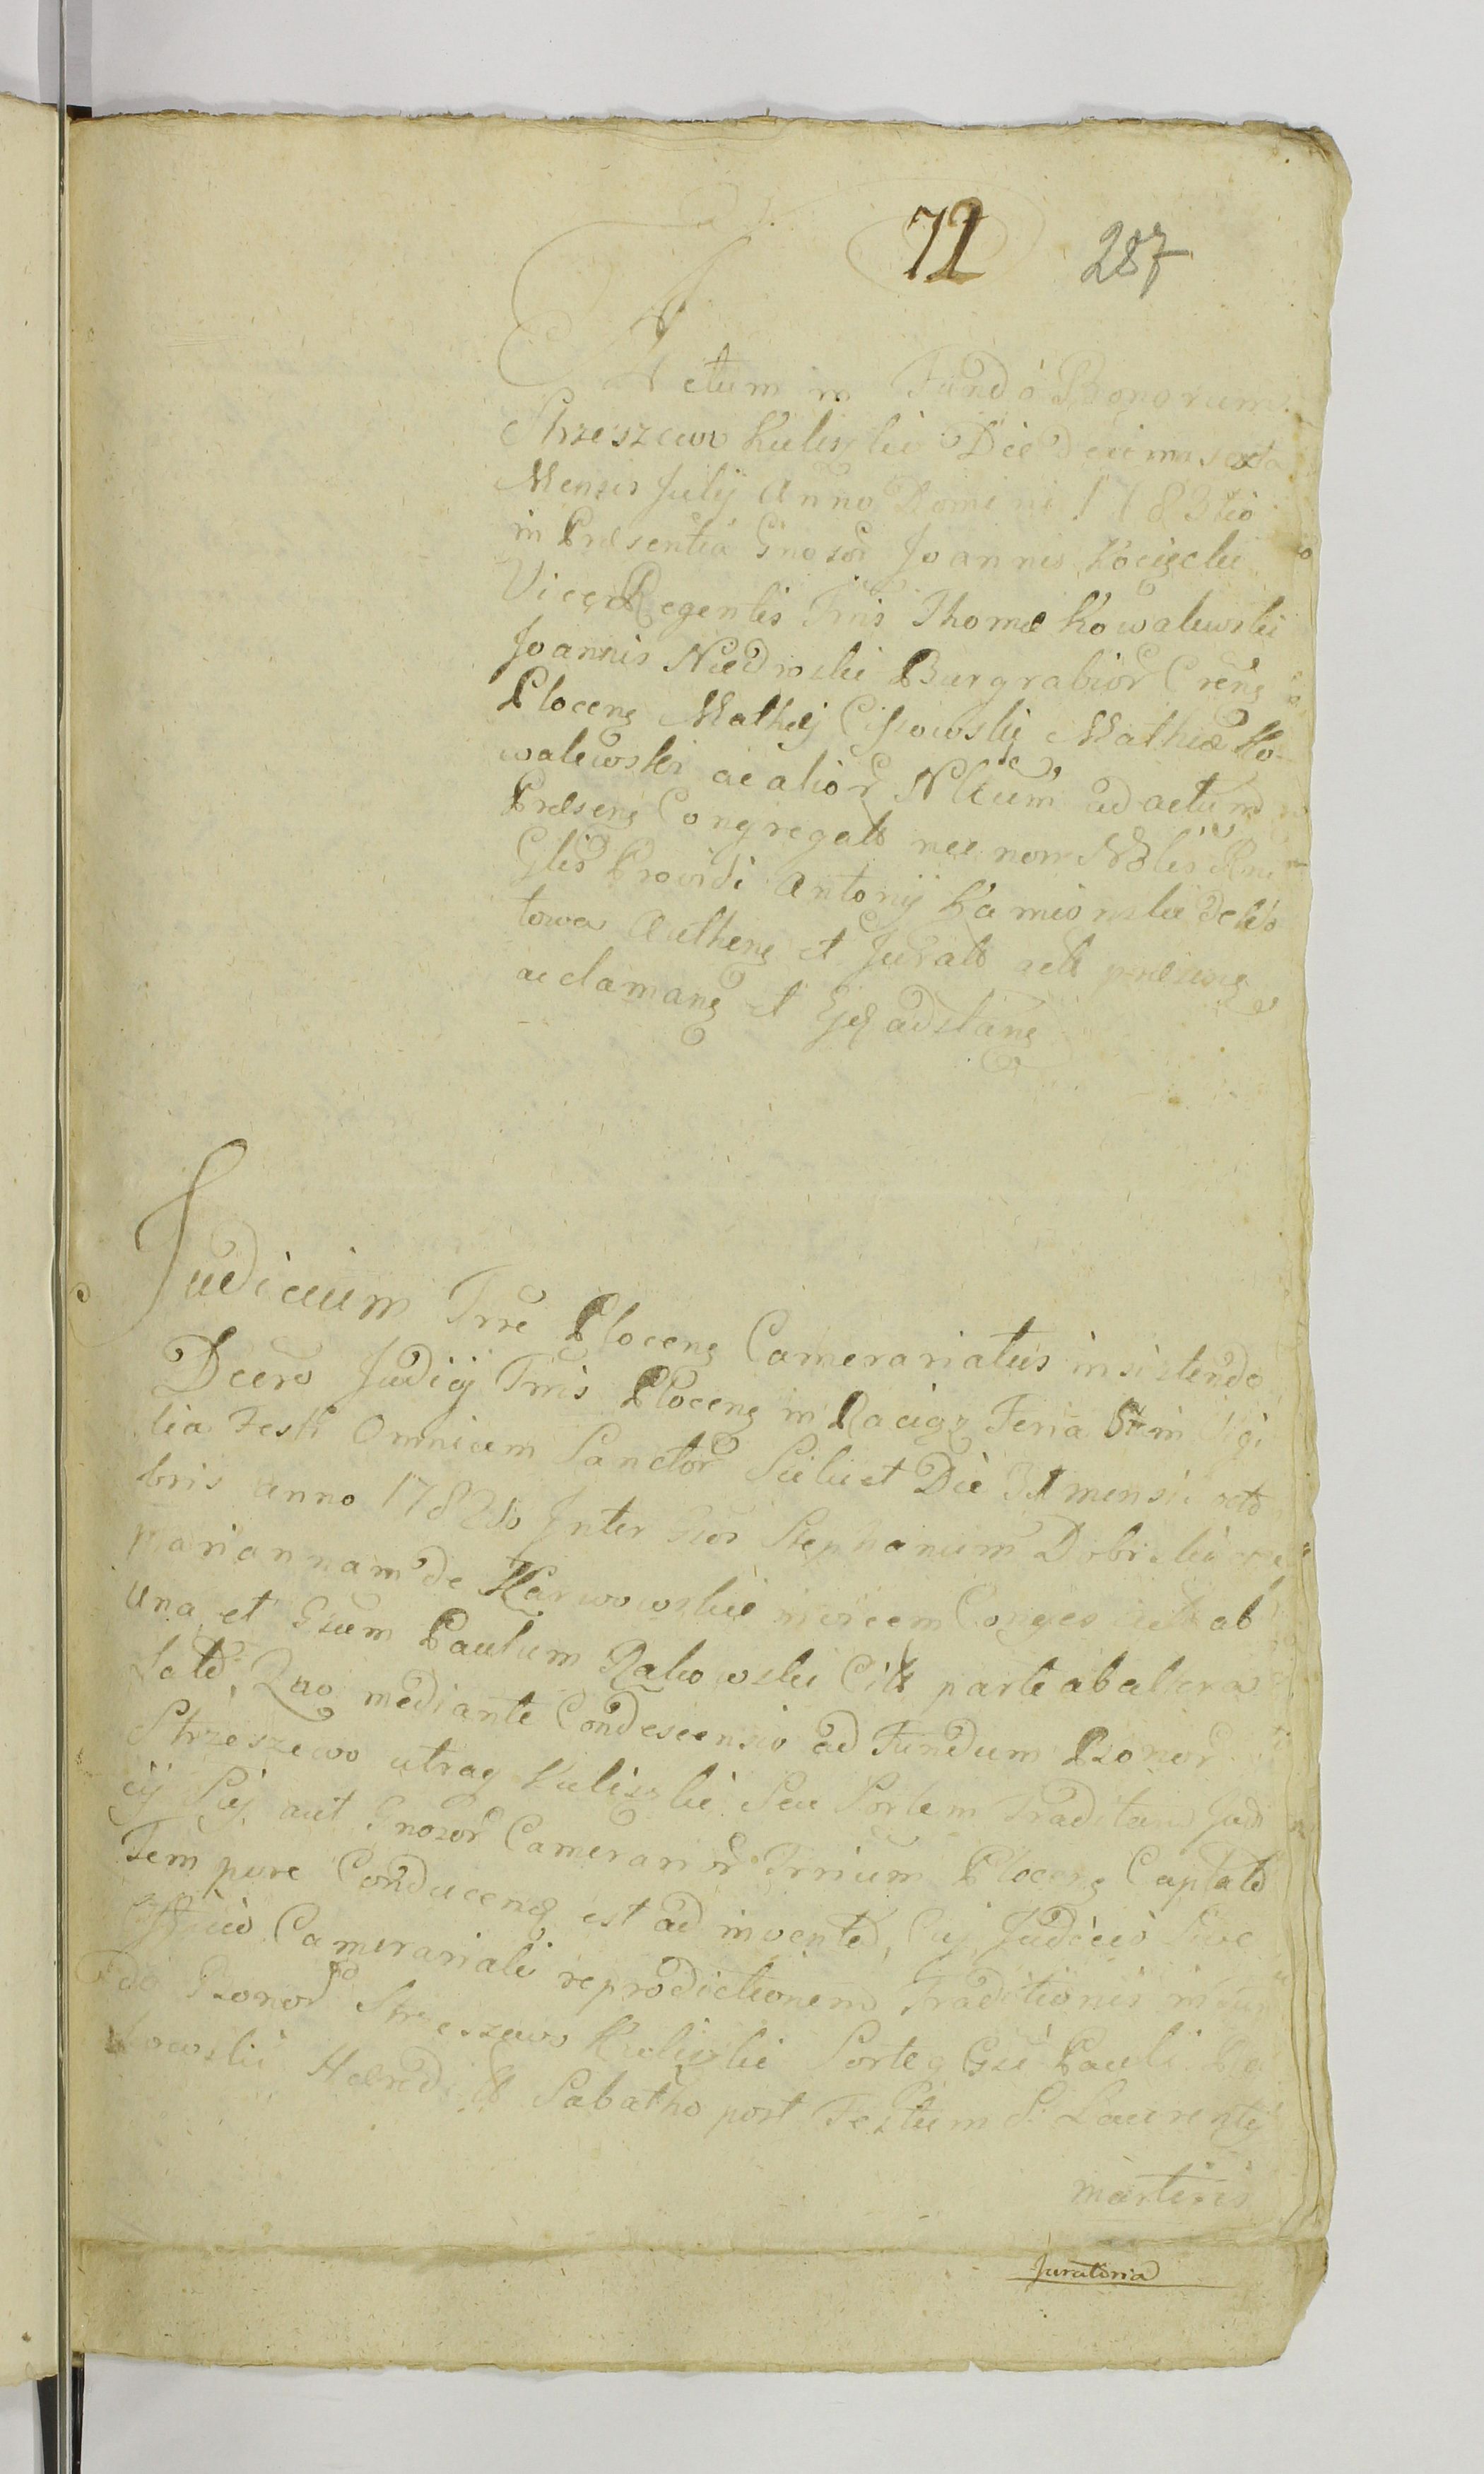 72 287
Actum in Fundo Bonorum
Strzeszewo Kuliszki Die Decima sexta
Mensis Julij Anno Domini 1783tio
in Præsentia Gnosor Joannis Kocięcki
Vice Regentis Trris Thomæ Kowalewski
Joannis Niedroski Burgrabior Crens
Plocens Mathej Cissowski Mathiæ Ko-
walewski ac alior Nlium ad actum
Præsens Congregat nec non
Glis Providi Antonij Kamionski de
towa Authens et Jurat act præsens
acclamans et adstans
Judicium Trre Plocens Camerariatus insistendo
Dcero Judicij Trris Plocens in Raciąz Feria 5ta in Vigi
lia Festi Omnium Sanctor Scilicet Die 31 mensis octo
bris anno 1782do Inter Gsos Stephanum Dobrski
Mariannam de Karwowskie invicem Conjges act ab
una et Gsum Paulum Rakowski Cit parte ab altera
Lato, Quo mediante Condescensio ad Fundum Bonor
Strzeszewo utraq Kuliszki Seu Sortem Traditam Judi
cij Suj aut Gnosor Camerarior Trrium Plocens Captato
Tempore Conducens est ad inventa, Cuj Judicio Sive
Officio Camerariali reproductionem Traditionis in fun
do Bonor Strzeszewo Kuliszki Sorteq Gsi Pauli Ra
kowski Hæred Sabatho post Festum S. Laurentij
martiris
Juratoria